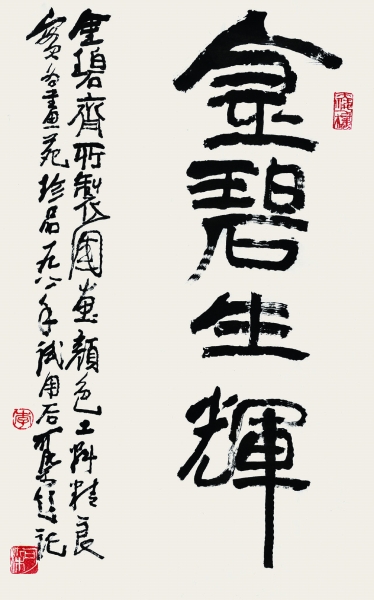 金碧生輝
金碧齊所製國畫顏色工料精良
實为畫苑珍品一九八年試用后可染題記